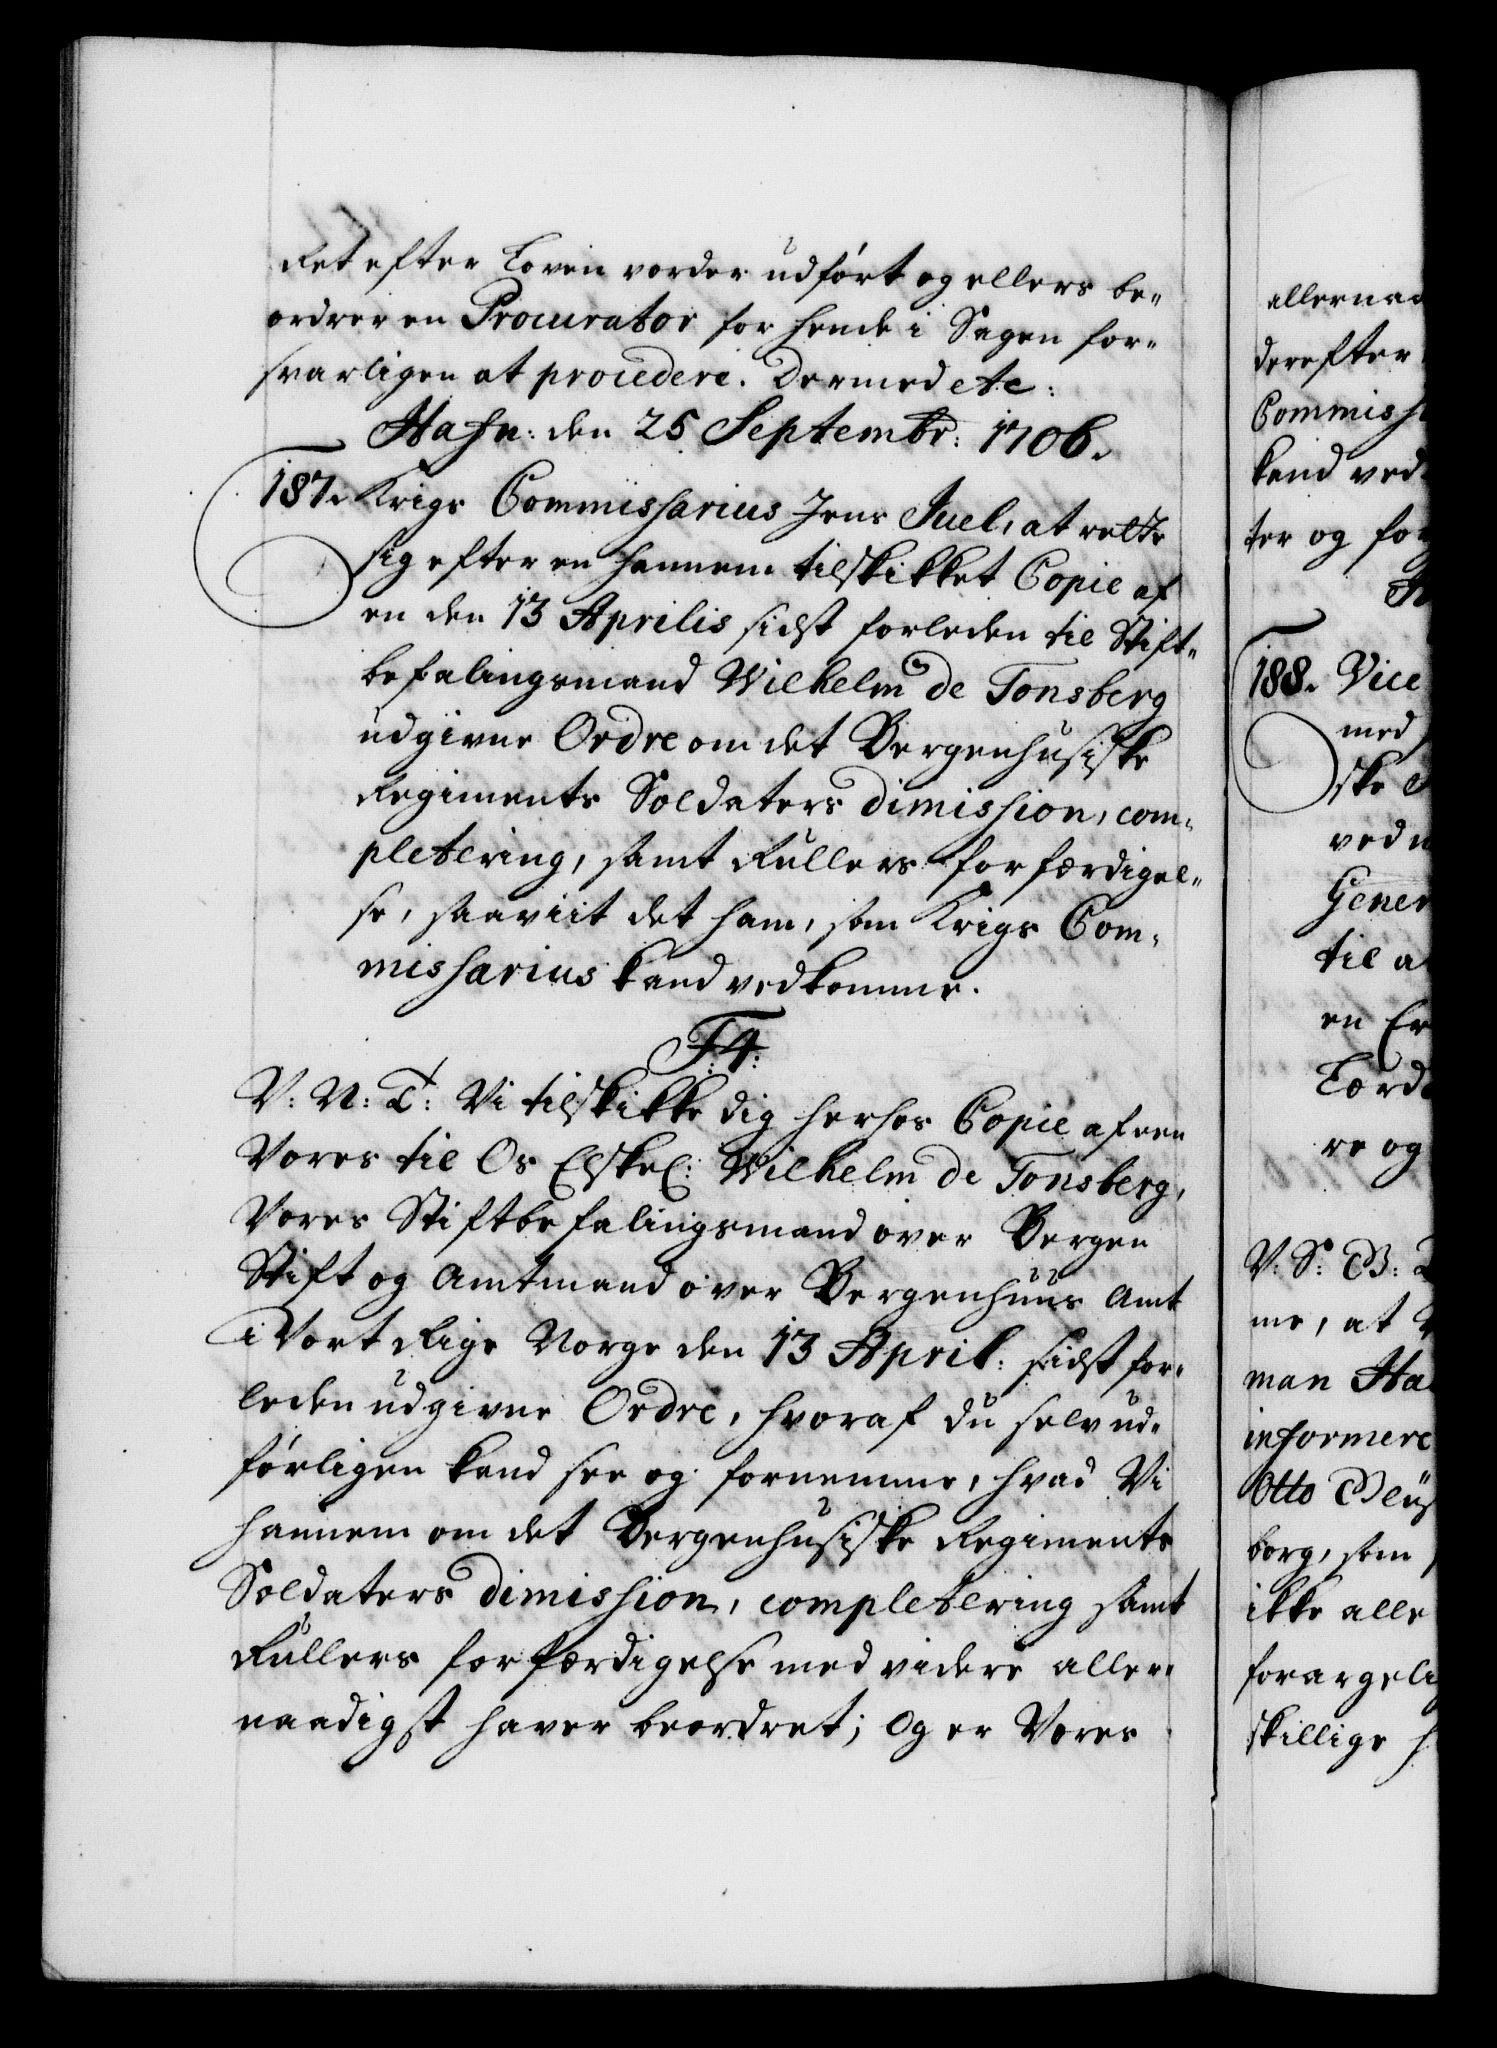 Ret efter Loven vorder udført og ellers be„
ordrer en Procurator for hende i Sagen for„
svarligen at procedere. Dermed etc:
Hafn: den 25 Septembr: 1706.
187. Krigs Commissarius Jens Juel, at rette
sig efter en hannem tilskikket Copie af
en den 13 Aprilis sidst forleden til Stift„
befalingsmand Wilhelm de Tonsberg
udgivne Ordre om det Bergenhusiske
Regiments Soldaters dimission, com„
pletering, samt Rullers forfærdigel„
se, saaviit det ham, som Krigs Com„
missarius kand vedkomme.
F: 4:
V: N: T: Vi tilskikke dig herhos Copie af een
Vores til Os Elskel: Wilhelm de Tonsberg,
Vores Stiftbefalingsmand over Bergen
Stift og Amtmand over Bergenhuus Amt
i Vort Rige Norge den 13 April: sidst for„
leden udgivne Ordre, hvoraf du selv ud„
førligen kand see og fornemme, hvad Vi
hannem om det Bergenhusiske Regiments
Soldaters dimission, completering samt
Rullers forfærdigelse med videre aller„
naadigst haver beordret; Og er Vores
allernaa
derefter
Commiss
kand ved
ter og for
188. Vice
med
ske
ved
Gener
til a
en Er
Lærd
re og
V: S: B:
me, at
man Ha
informere
Otto
borg, som
ikke alle
forargeli
skillige